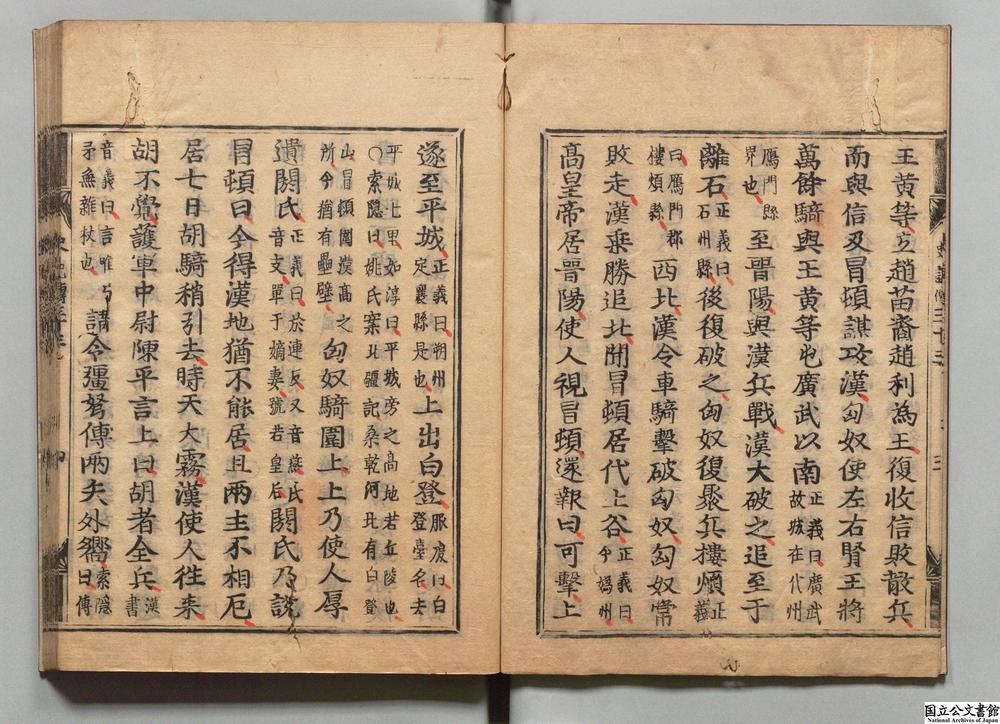 王黃等立趙苗裔趙利為王復收信敗散兵
而與信及冒頓謀攻漢匈奴使左右賢王將
萬餘騎與王黃等屯廣武以南正義曰廣武故城在代州
鴈門縣界也至晉陽與漢兵戰漢大破之追至于
離石正義曰石州縣後復破之匈奴復聚兵樓煩正義
曰鴈門郡樓煩縣西北漢令車騎擊破匈奴匈奴常
敗走漢乘勝追北聞冒頓居代上谷正義曰今媯州
高皇帝居晉陽使人視冒頓還報曰可擊上
史記傳三十三
三
遂至平城正義曰朔州定襄縣是也上出白登服虔曰白登臺名去
平城七里如淳曰平城旁之高地若丘陵也○索隱曰姚氏案北疆記桑乾河北有白登
山冒頓圍漢高之所今猶有壘壁匈奴騎圍上上乃使人厚
遺閼氏正義曰於連反又音燕氏音支單于嫡妻號若皇后閼氏乃說
冒頓曰今得漢地猶不能居且兩主不相厄
居七日胡騎稍引去時天大霧漢使人往來
胡不覺護軍中尉陳平言上曰胡者全兵漢書
音義曰言唯弓矛無雜杖也請令彊弩傅兩矢外嚮索隱曰傅
四
国立公文書館
National Archives of Japan